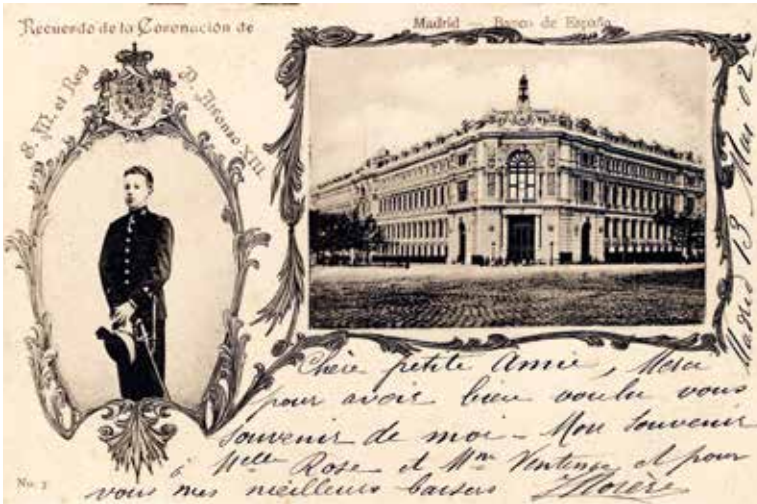 Recuerdo de la Coronación de
S. M. el Rey
D. Alfonso XIII.
Madrid — Banco de España
Madrid 13 Mai 02
Chère petite Amie, Merci
pour avoir bien voulu vous
souvenir de moi - Mon souvenir
à Melle Rose et Mme et pour
vous mes meilleurs baisers
No.